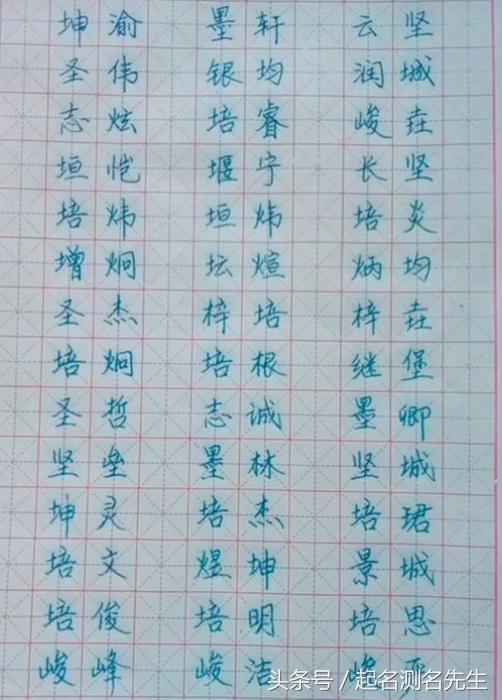 坤渝 墨轩 云坚
圣伟 银均 润城
志炫 培睿 峻垚
垣恺 堰宁 长坚
培炜 垣炜 培炎
增炯 坛煊 炳均
圣杰 梓培 梓垚
培炯 培根 继堡
圣哲 志诚 墨卿
坚垒 墨林 坚城
坤灵 培杰 培珺
培文 煜坤 景城
培俊 培明 培思
峻峰 峻洁
头条号/起名测名先生